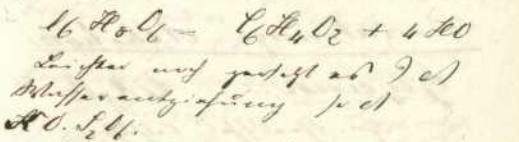 C6 H8 O6 = C6 H4 O2 + 4 HO
Leichter noch zersetzt es
Wasserentziehung
HO. S2O6.